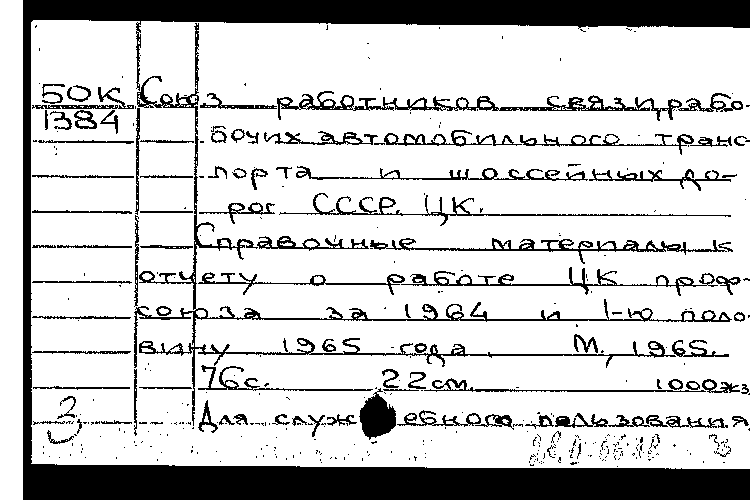 50К Союз работников связи, рабо-
1384
бочих автомобильного транс-
порта и шоссейных до-
рог СССР. ЦК.
Справочные материалы к
отчету о работе ЦК проф-
союза за 1964 и 1-ю поло-
вину 1965 года. М., 1965.
76с. 22см. 1000экз
3 Для служебного пользования